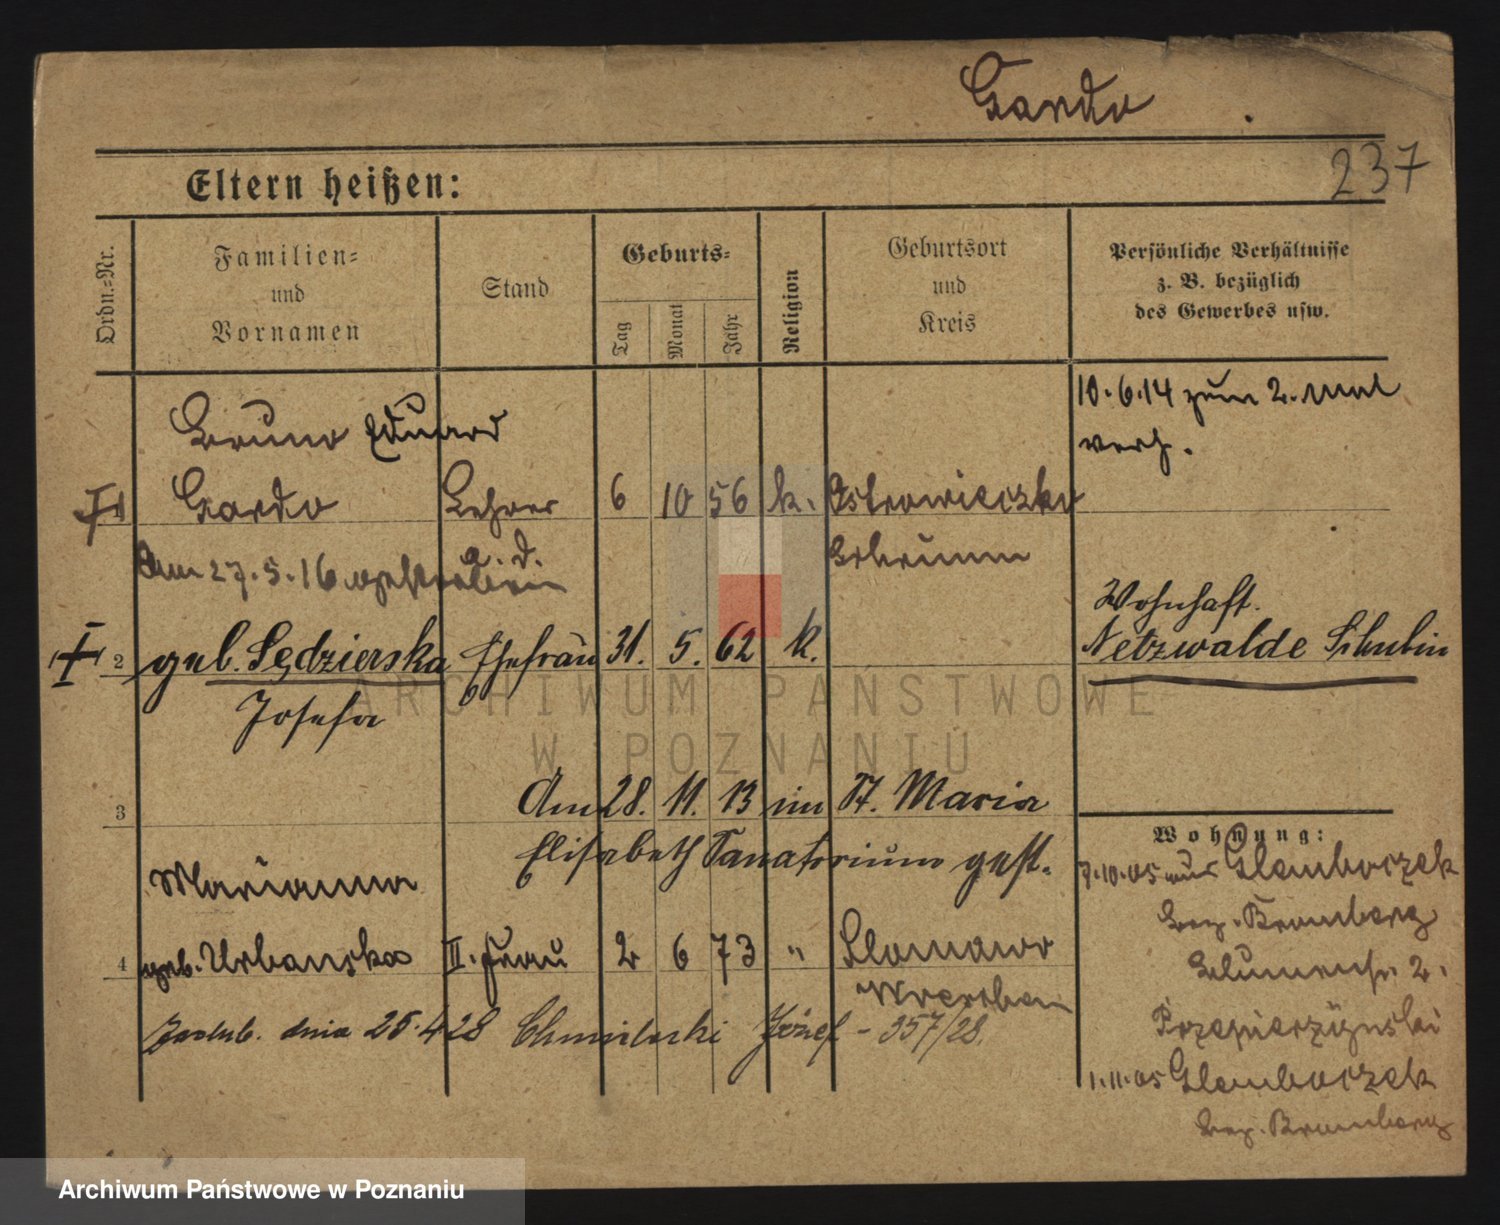 Gardo
237
Eltern heißen:
Ordn.-Nr.
Familien-
und
Vornamen
Stand
Geburts-
Tag
Monat
Jahr
Religion
Geburtsort
und
Kreis
Persönliche Verhältnisse
z. B. bezüglich
des Gewerbes usw.
10.6.14 zum 2. Mal
verh.
Bruno Eduard
1 Gardo Lehrer 6 10 56 k. Ostrowieczko
a. D. Schrimm
Am 27.5.16 gestorben
Wohnhaft.
Netzwalde Schubin
2 geb. Sędzierska Ehefrau 31. 5. 62 k.
Josefa
3
Am 28. 11. 13 im St. Maria
Elisabeth Sanatorium gest.
Marianna
4 geb. Urbanska II. Frau 2 6 73 " Slomowo
Wreschen
Zaślub. dnia 25.4.28 Chmielecki Józef - 357/28.
Wohnung:
7.10.05 aus Glemboczek
Bez. Bromberg
Blumenstr. 2.
1.11.05 Glemboczek
Bez. Bromberg
ARCHIWUM PAŃSTWOWE
W POZNANIU
Archiwum Państwowe w Poznaniu